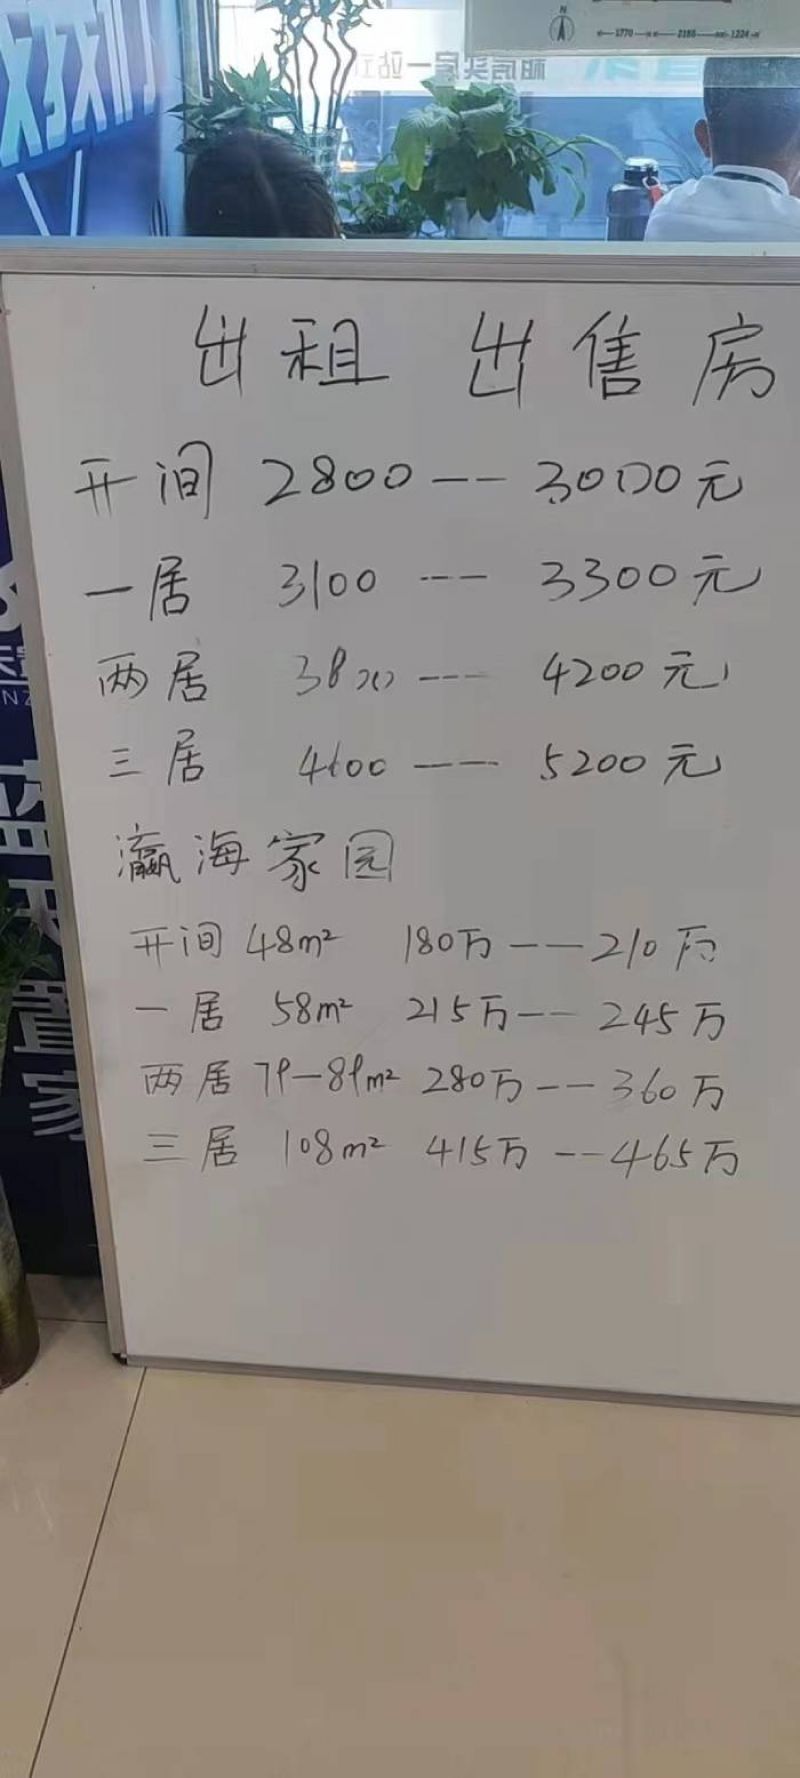 N
1770
2180
租房买房一站式
出租 出售房
开间 2800 -- 3000元
一居 3100 --- 3300元
两居 3800 --- 4200元
三居 4600 --- 5200元
瀛海家园
开间 48m² 180万 --- 210万
一居 58m² 215万 --- 245万
两居 79-89m² 280万 --- 360万
三居 108m² 415万 --- 465万
置
家